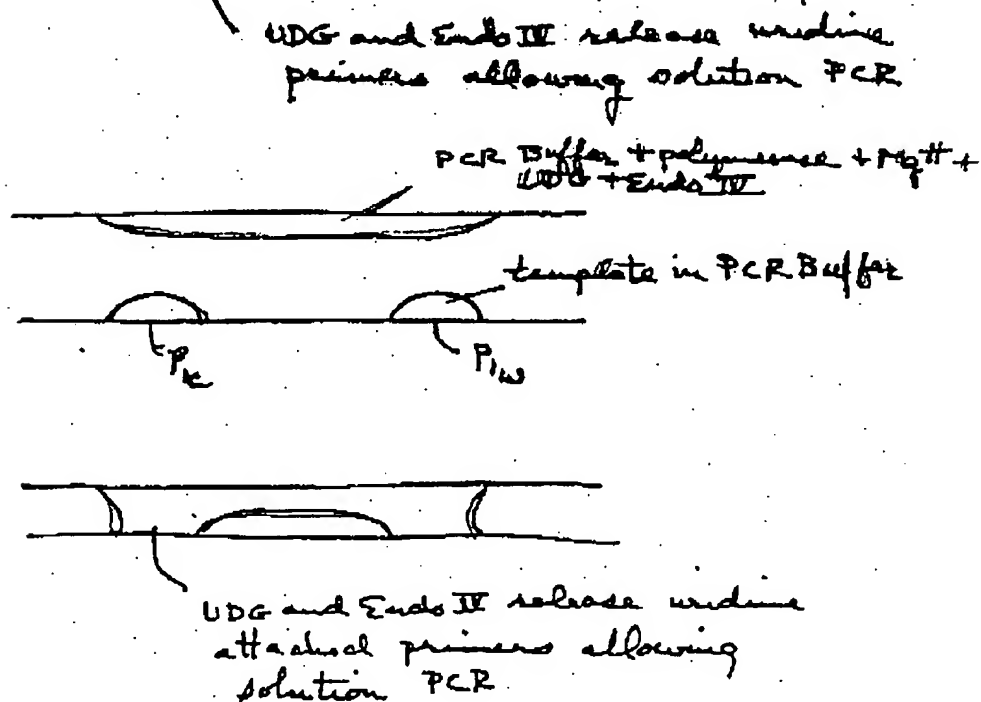 UDG and Endo IV release uridine
primers allowing solution PCR
PCR Buffer + polymerase + Mg++ +
UDG + Endo IV
template in PCR Buffer
UDG and Endo IV release uridine
attached primers allowing
solution PCR